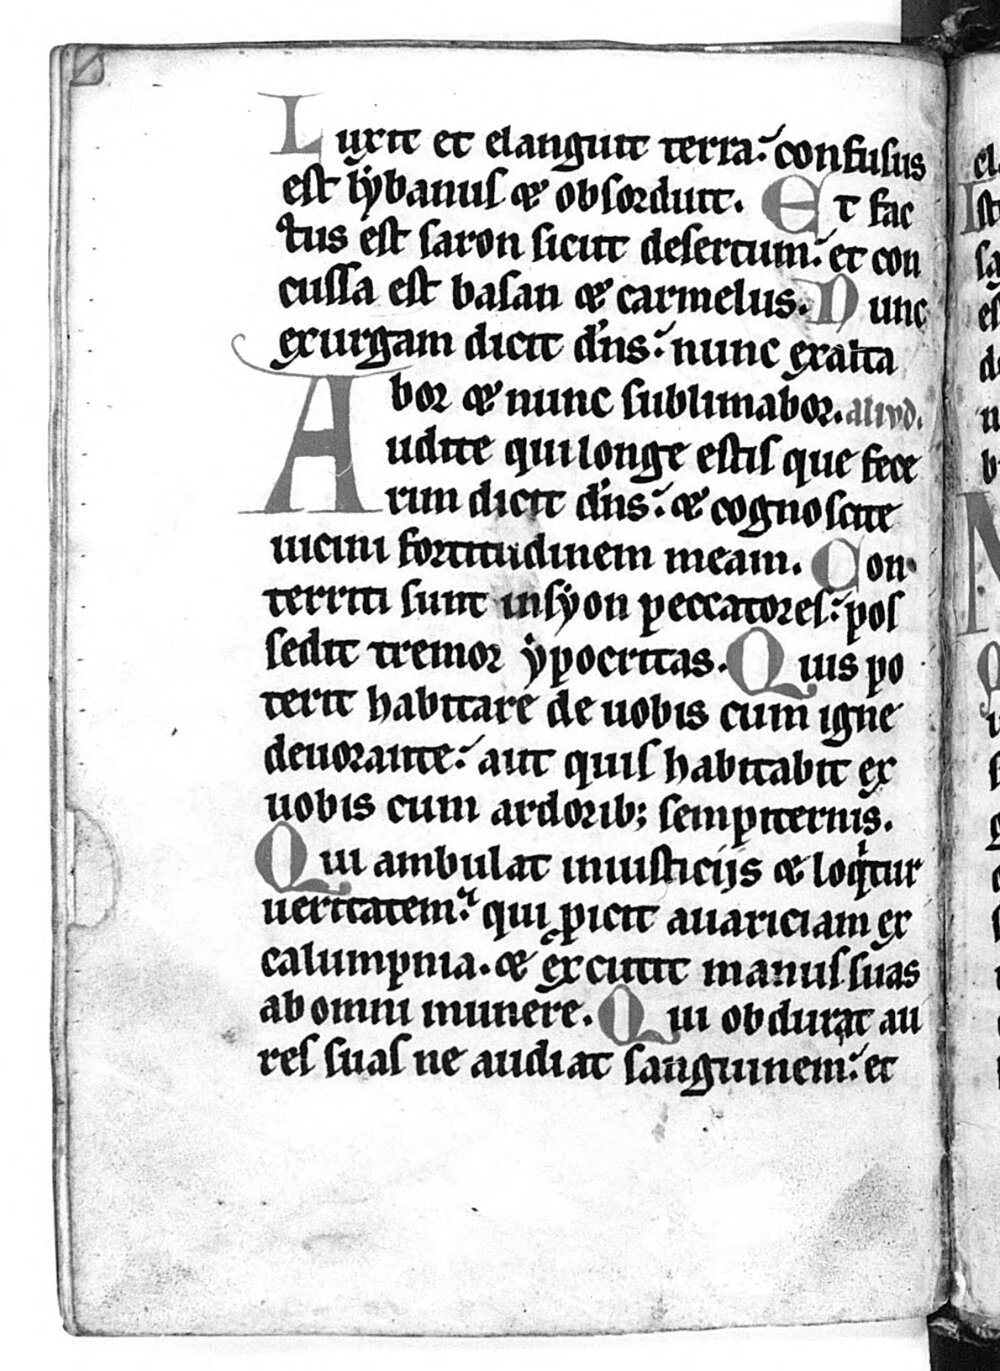 Luxit et elanguit terra. confusus
est lybanus & obsorduit. Et fac
tus est saron sicut desertum. et con
cussa est basan & carmelus. Nunc
exurgam dicit dn̄s. nunc exalta
bor & nunc sublimabor. aliud.
Audite qui longe estis que fece
rim dicit dn̄s. & cognoscite
uicini fortitudinem meam. Con
territi sunt insyon peccatores. pos
sedit tremor ypocritas. Quis po
terit habitare de uobis cum igne
deuorante. aut quis habitabit ex
uobis cum ardorib; sempiternis.
Qui ambulat iniusticijs & loqͥtur
ueritatem. qui ꝓicit auariciam ex
calumpnia. & excutit manus suas
ab omni munere. Qui obdurat au
res suas ne audiat sanguinem. et